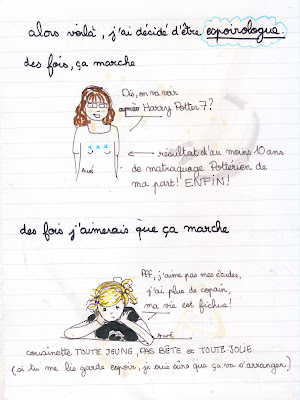 alors voilà, j'ai décidé d'être espoirologue.
des fois, ça marche
Dis, on va voir
après Harry Potter 7?
← résultat d'au moins 10 ans
de matraquage Pottérien de
ma part! ENFIN!
des fois j'aimerais que ça marche
PFF, j'aime pas mes études,
j'ai plus de copain,
ma vie est fichue!
cousinette TOUTE JEUNE, PAS BÊTE et TOUTE JOLIE
(si tu me lis garde espoir, je suis sûre que ça va s'arranger.)